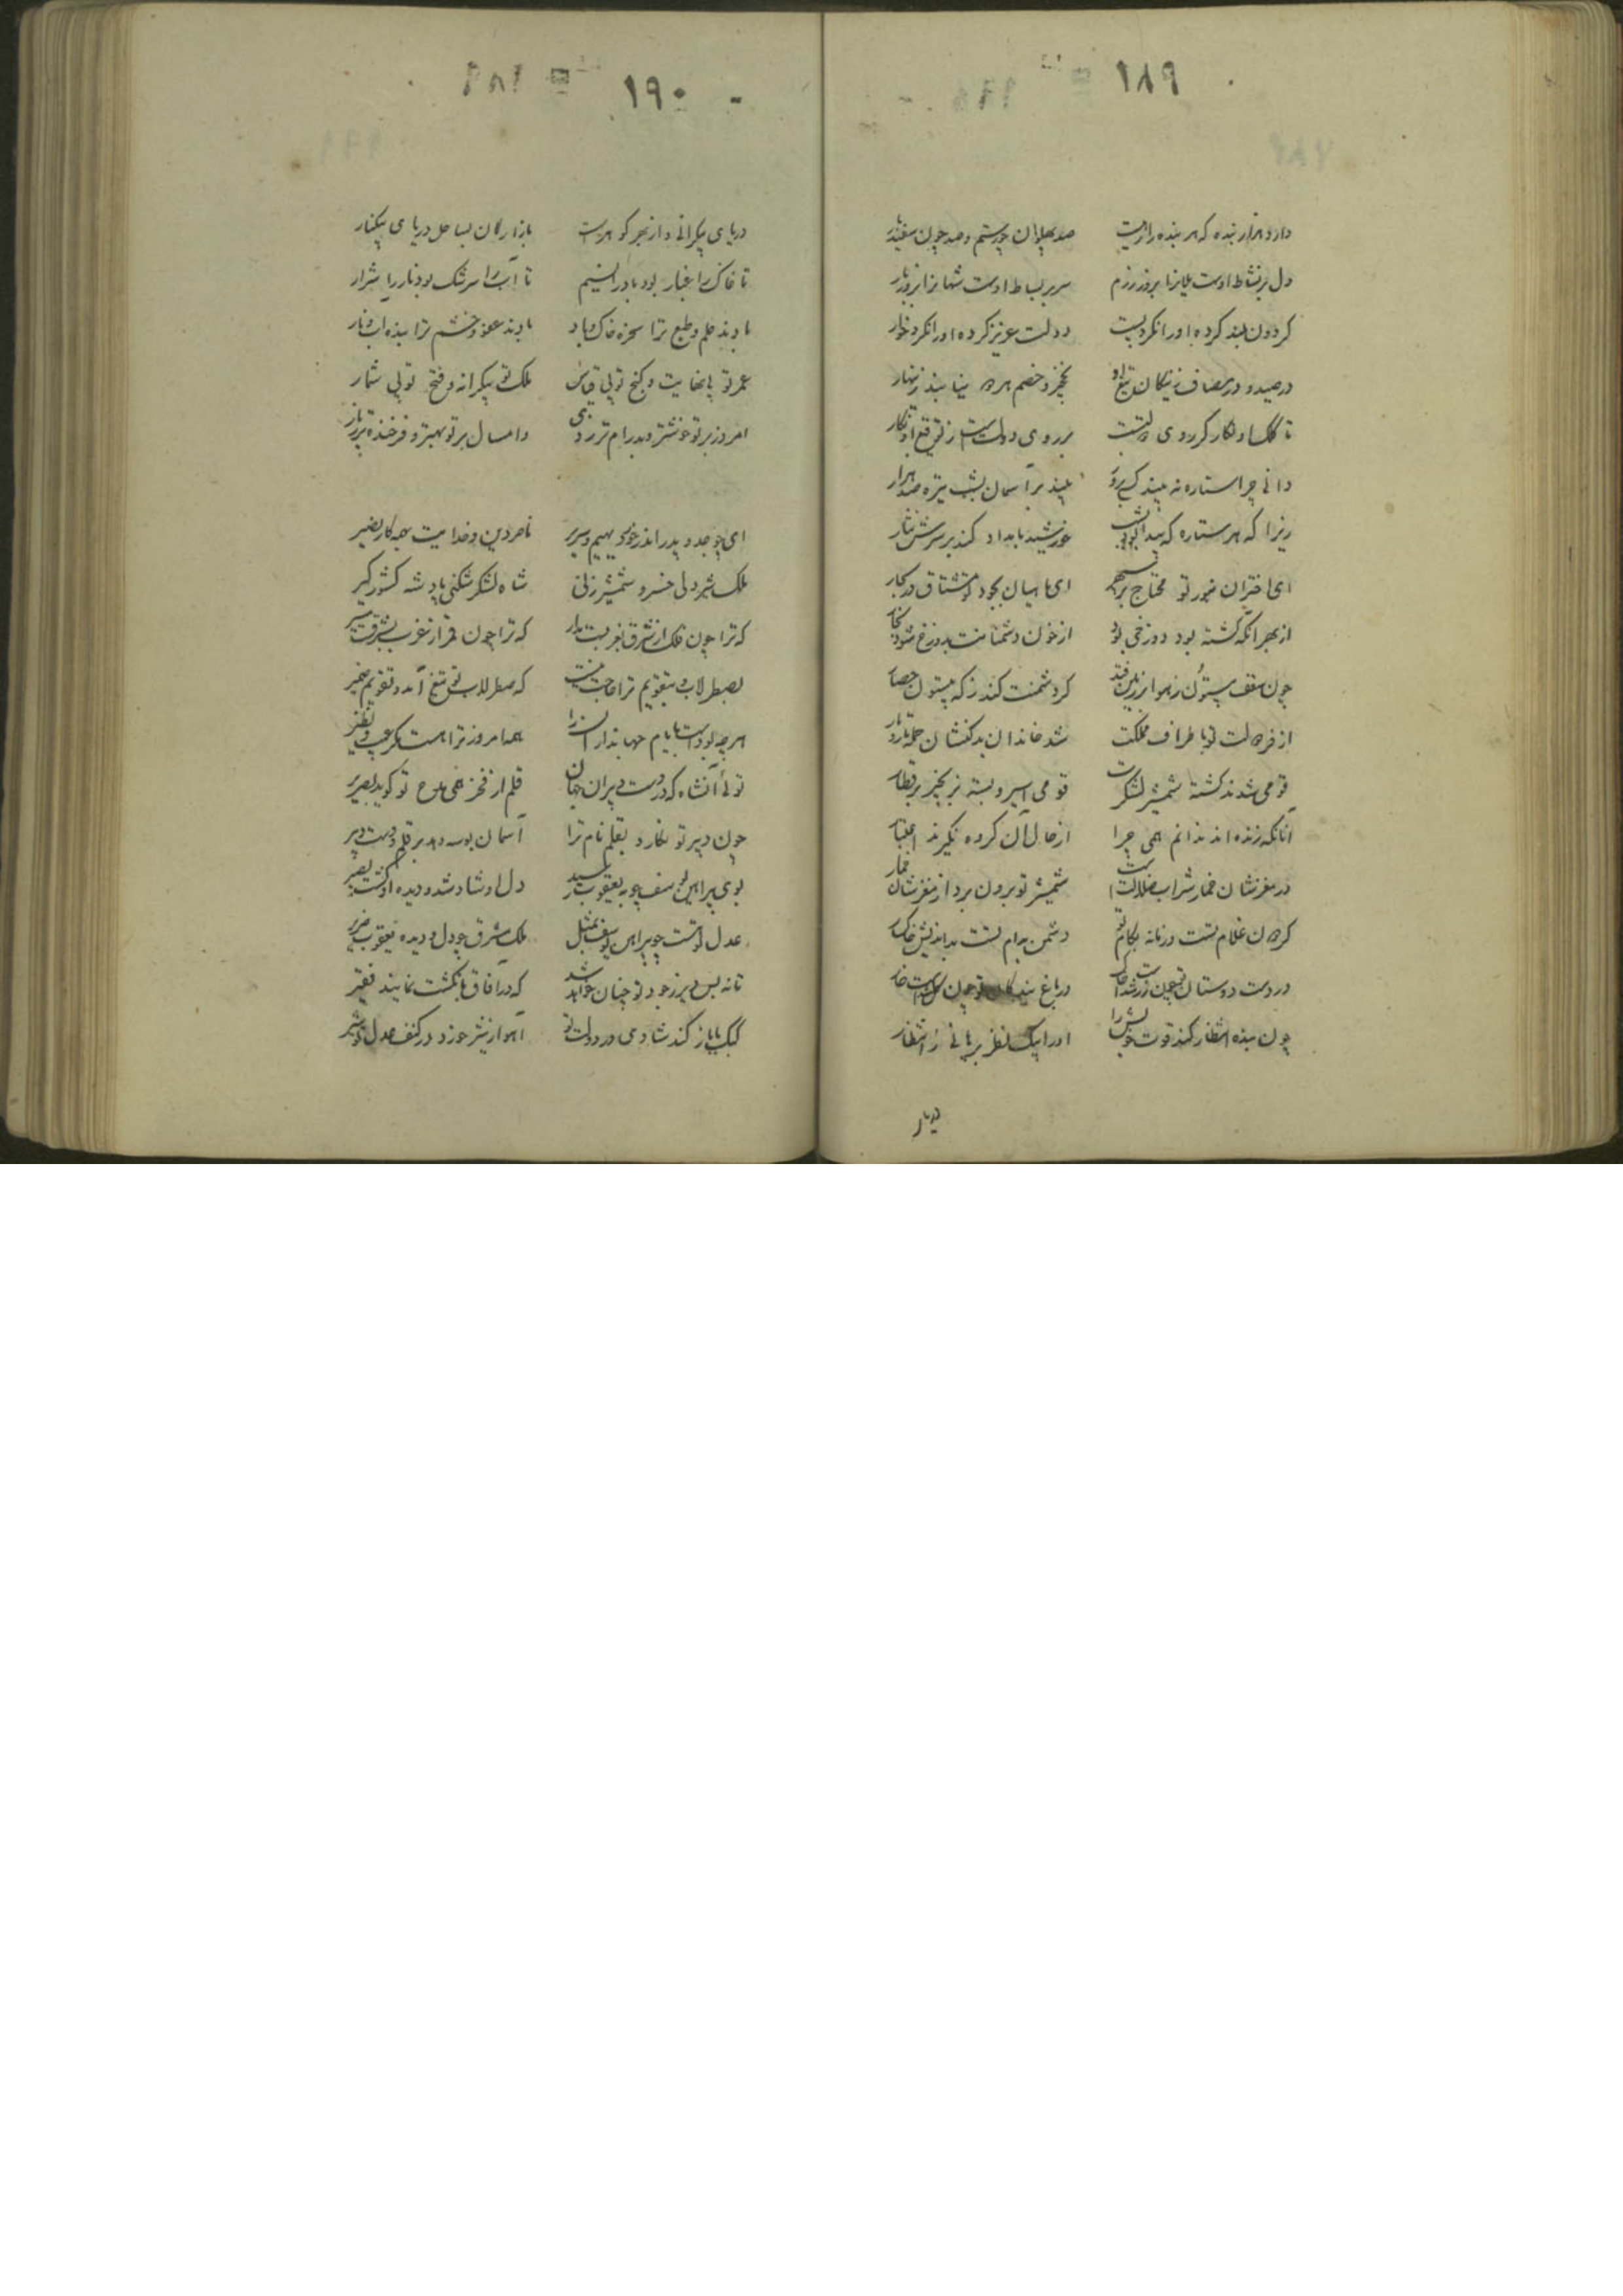 ۱۸۹
دارد هزار بنده که هر بنده را
صد پهلوان چو رستم و صد چون سفندیار
دل بر نشاط اوست یلانرا بروز رزم
سر بر بساط اوست شهانرا بروز بار
گردون بلند کرده او را نکرد پست
دولت عزیز کرده او را نکرد خوار
در صید و در مصاف ز پیکان تیغ او
نخچیر و خصم هر دو نیابند زینهار
تا کلک او نگار گر روی
بر روی دولت است ز توقیع او نگار
دانی چرا ستاره نه بیند کسی بروز
بیند بر آسمان بشب تیره صد هزار
زیرا که هر ستاره که پیدا بود بشب
خورشید بامداد کند بر سرش نثار
ای اختران بنور تو محتاج بر سپهر
ای ماهیان بجود تو مشتاق در بحار
از بهر آنکه کشته بود دوزخی
از خون دشمنانت بدوزخ شود
چون سقف بیستون ز هوا بر زمین فتد
گر دشمنت کند ز که بیستون حصار
از فر دولت تو باطراف مملکت
شد خاندان بدکنشان جمله تار و مار
قومی شدند کشته شمشیر لشکرت
قومی اسیر و بسته زنجیر بر قطار
آنانکه زنده اند ندانم همی چرا
از حال آن گروه نگیرند اعتبار
در مغزشان خمار شراب ضلالت است
شمشیر تو برون برد از مغزشان خمار
گردون غلام تست و زمانه بکام تو
دشمن بدام تست بداندیش خاکسار
در دست دوستان تو چون زر شد
در باغ بندگان تو چون گل شد است خار
چون بنده انتظار کند قوت
او را بیک نظر برهانی ز انتظار
دریای
۱۹۰
دریای بیکرانی و از بحر گوهرست
بازارگان بساحل دریای بیکنار
تا خاک را غبار بود باد را نسیم
تا آب را سرشک بود نار را شرار
بادند حلم و طبع ترا سخره خاک و باد
بادند عفو و خشم ترا بنده آب و نار
عمر تو بی نهایت و گنج تو بی قیاس
ملک تو بیکرانه و فتح تو بی شمار
امروز بر تو خوشتر و پدرام تر ز دی
وامسال بر تو بهتر و فرخنده تر ز پار
ای چو جد و پدر اندر خور دیهیم و سریر
ناصر دین و خدایت بهمه کار نصیر
ملک شیر دلی خسرو شمشیر زنی
شاه لشکر شکنی پادشه کشور گیر
که ترا چون فلک از شرق بغربست مدار
که ترا چون قمر از غرب بشرقست مسیر
بصطرلاب و بتقویم ترا حاجت نیست
که صطرلاب تو تیغ آمد و تقویم ضمیر
هر چه بودست بایام جهانداران را
همه امروز ترا هست مگر عیب و نظیر
توئی آنشاه که در دست دبیران جهان
قلم از فخر همی مدح تو گوید بصریر
چون دبیر تو نگارد بقلم نام ترا
آسمان بوسه دهد بر قلم و دست دبیر
بوی پیراهن یوسف چو به یعقوب رسید
دل او شاد شد و دیده او گشت بصیر
عدل تو هست چو پیراهن یوسف بمثل
ملک مشرق چو دل و دیده یعقوب ضریر
تا نه بس دیر ز جود تو چنان خواهد شد
که در آفاق بانگشت نمایند فقیر
کبک با باز کند شادمی در دولت تو
آهو از شیر خورد در کنف عدل تو شیر